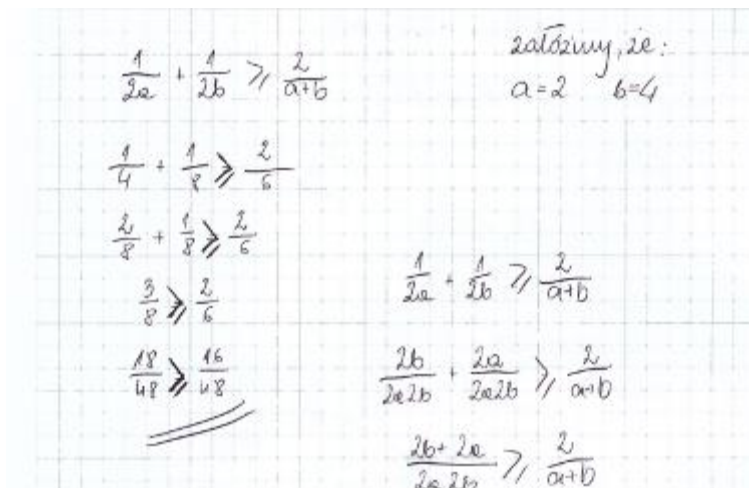 1/2a + 1/2b ⩾ 2/a+b
1/4 + 1/8 ⩾ 2/6
2/8 + 1/8 ⩾ 2/6
3/8 ⩾ 2/6
18/48 ⩾ 16/48
założimy, że:
a=2 b=4
1/2a + 1/2b ⩾ 2/a+b
2b/2a2b + 2a/2a2b ⩾ 2/a+b
2b+2a/2a2b ⩾ 2/a+b